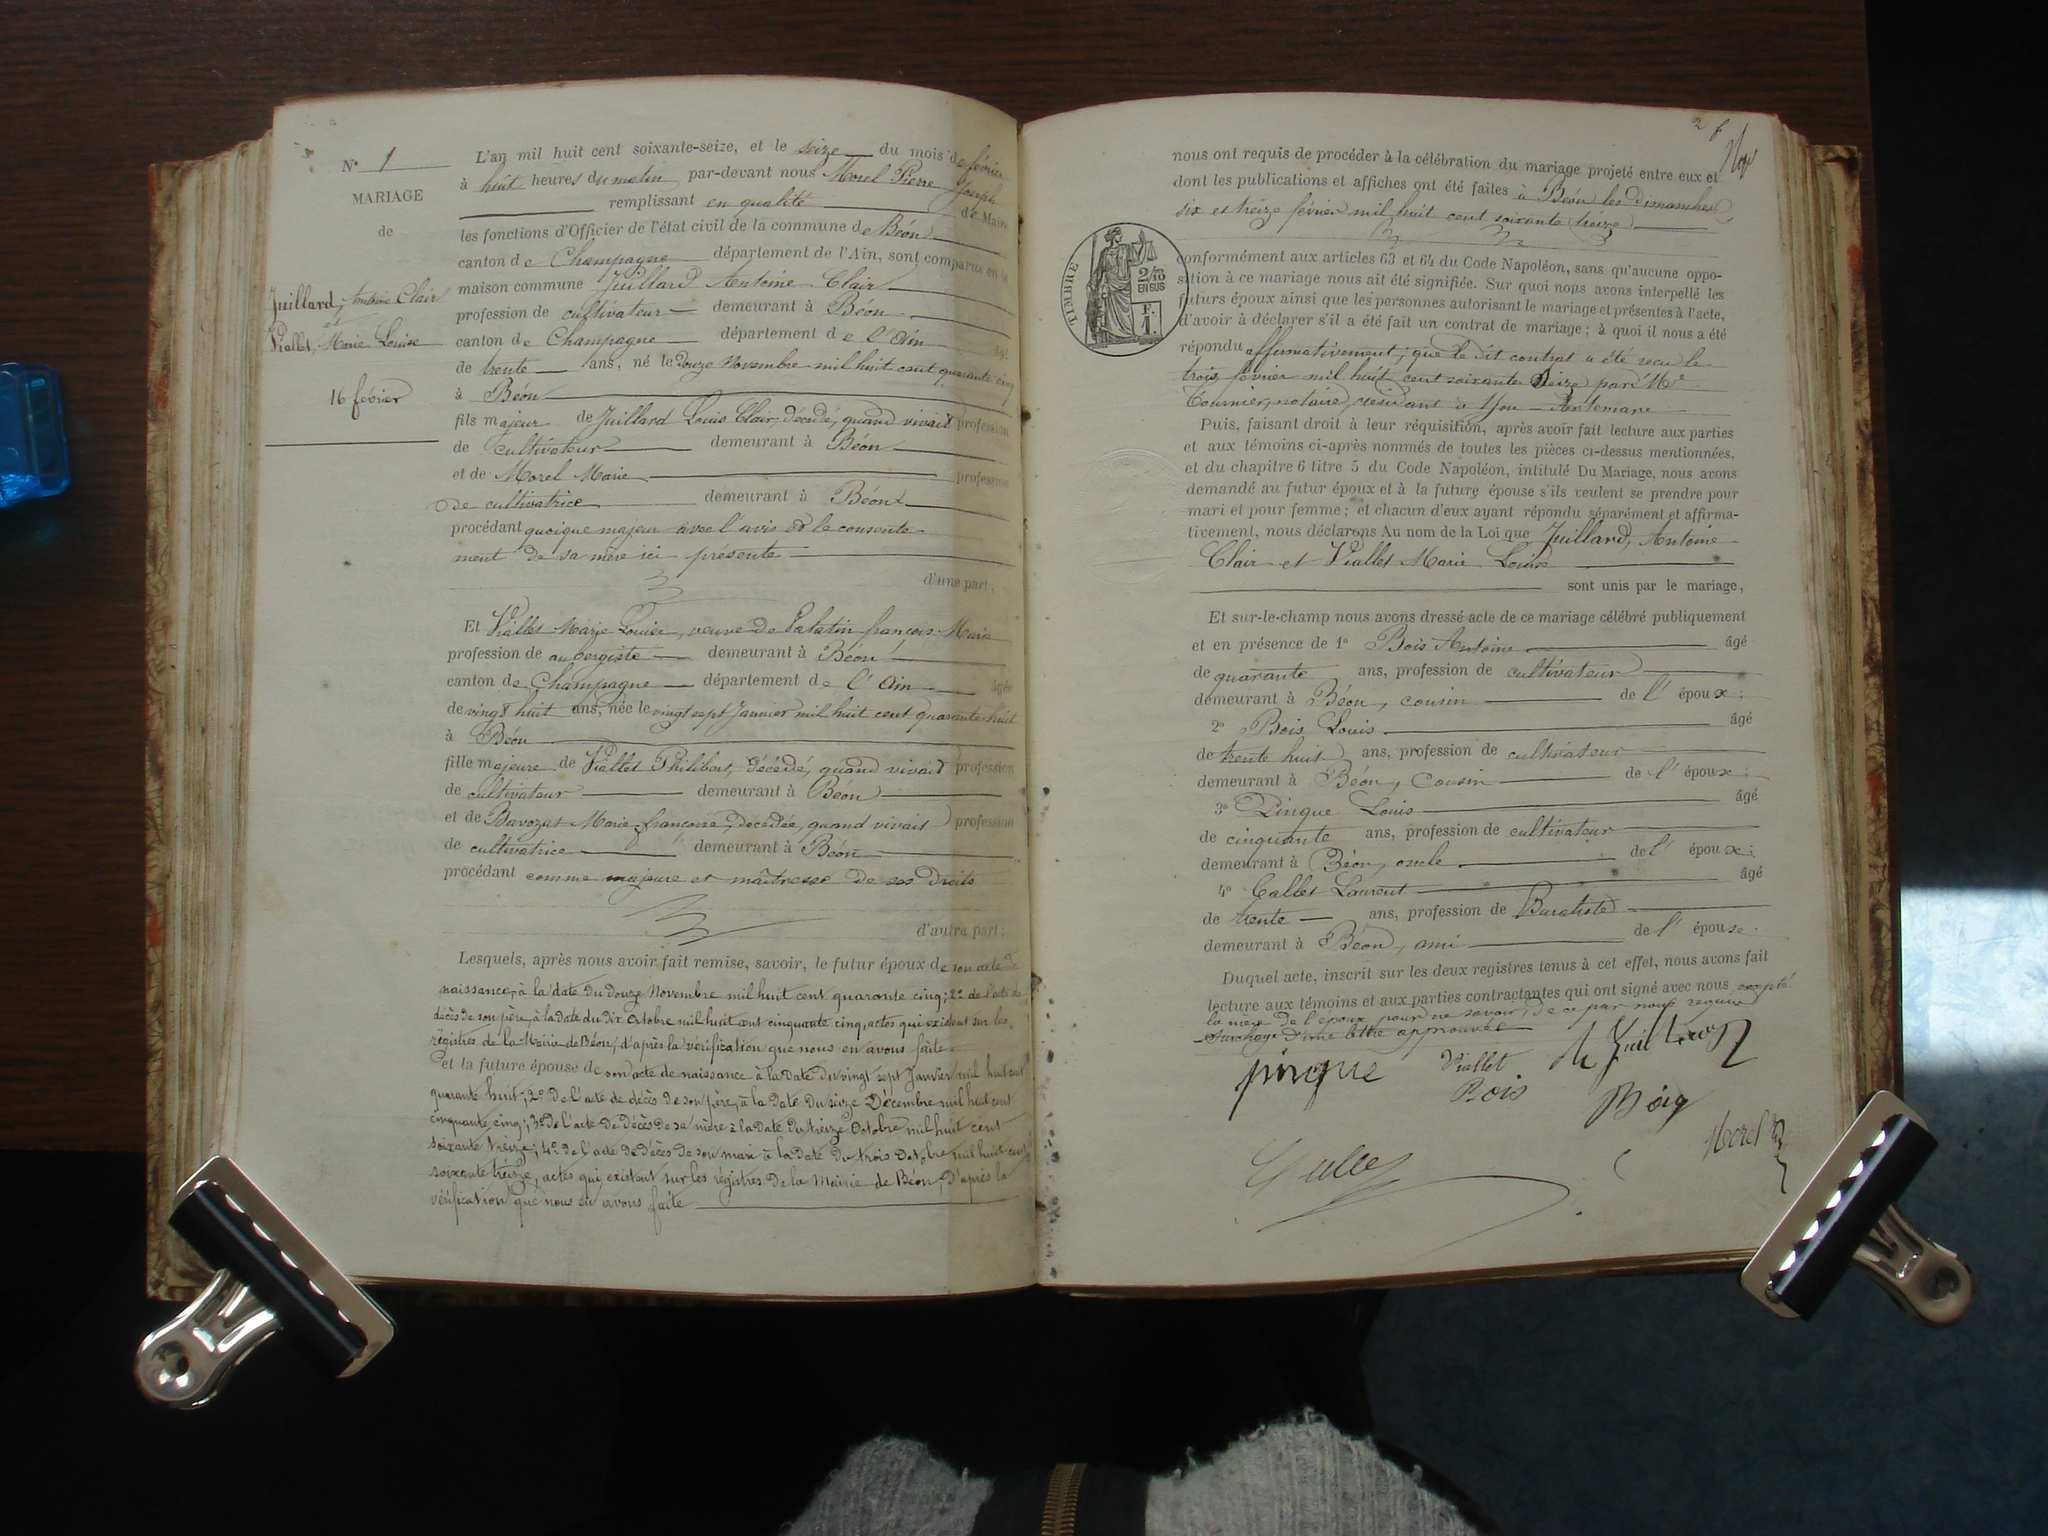 N° 1
MARIAGE
de
Juillard, Antoine Clair
et
Viallet, Marie Louise
16 février
L'an mil huit cent soixante-seize, et le seize du mois de février
à huit heures du matin par-devant nous Morel Pierre Joseph
remplissant en qualité de Maire
les fonctions d'Officier de l'état civil de la commune de Béon
canton de Champagne département de l'Ain, sont comparus en la
maison commune Juillard Antoine Clair
profession de cultivateur demeurant à Béon
canton de Champagne département de l'Ain âgé
de trente ans, né le Douze Novembre mil huit cent quarante cinq
à Béon
fils majeur de Juillard Louis Clair, décédé, quand vivait profession
de cultivateur demeurant à Béon
et de Morel Marie profession
de cultivatrice demeurant à Béon
procédant quoique majeur avec l'avis et le consente-
ment de sa mère ici présente
d'une part;
Et Viallet Marie Louise, veuve de Palatin françois Marie
profession de aubergiste demeurant à Béon
canton de Champagne département de l'Ain âgée
de vingt huit ans, née le vingt sept Janvier mil huit cent quarante huit
à Béon
fille majeure de Viallet Philibert, décédé, quand vivait profession
de cultivateur demeurant à Béon
et de Bavozat Marie françoise, décédée, quand vivait profession
de cultivatrice demeurant à Béon
procédant comme majeure et maîtresse de ses droits
d'autre part;
Lesquels, après nous avoir fait remise, savoir, le futur époux de son acte de
naissance, à la date du Douze Novembre mil huit cent quarante cinq; 2° de l'acte de
décès de son père, à la date du dix Octobre mil huit cent cinquante cinq, actes qui existent sur les
régistres de la Mairie de Béon, d'après la vérification que nous en avons faite
et la future épouse de son acte de naissance à la date du vingt sept Janvier mil huit cent
quarante huit; 2° de l'acte de décès de son père, à la date du seize Décembre mil huit cent
cinquante cinq; 3° de l'acte de décès de sa mère à la date du treize Octobre mil huit cent
soixante treize; 4° de l'acte de décès de son mari à la date du trois Octobre mil huit cent
soixante treize, actes qui existent sur les régistres de la Mairie de Béon, d'après la
vérification que nous en avons faite
2 f
nous ont requis de procéder à la célébration du mariage projeté entre eux et
dont les publications et affiches ont été faites à Béon les dimanches
six et treize février mil huit cent soixante treize
TIMBRE
2/10
EN SUS
F.
1.
conformément aux articles 63 et 64 du Code Napoléon, sans qu'aucune oppo-
sition à ce mariage nous ait été signifiée. Sur quoi nous avons interpellé les
futurs époux ainsi que les personnes autorisant le mariage et présentes à l'acte,
d'avoir à déclarer s'il a été fait un contrat de mariage; à quoi il nous a été
répondu affirmativement; que le dit contrat a été reçu le
trois février mil huit cent soixante seize par Me
Tournier, notaire, résidant à Yon-Artemare
Puis, faisant droit à leur réquisition, après avoir fait lecture aux parties
et aux témoins ci-après nommés de toutes les pièces ci-dessus mentionnées,
et du chapitre 6 titre 5 du Code Napoléon, intitulé Du Mariage, nous avons
demandé au futur époux et à la future épouse s'ils veulent se prendre pour
mari et pour femme; et chacun d'eux ayant répondu séparément et affirma-
tivement, nous déclarons Au nom de la Loi que Juillard, Antoine
Clair et Viallet Marie Louise
sont unis par le mariage,
Et sur-le-champ nous avons dressé acte de ce mariage célébré publiquement
et en présence de 1° Bois Antoine âgé
de quarante ans, profession de cultivateur
demeurant à Béon, cousin de l'époux;
2° Bois Louis âgé
de trente huit ans, profession de cultivateur
demeurant à Béon, Cousin de l'époux;
3° Pingue Louis âgé
de cinquante ans, profession de cultivateur
demeurant à Béon, oncle de l'époux;
4° Callet Laurent âgé
de trente ans, profession de Buraliste
demeurant à Béon, ami de l'épouse.
Duquel acte, inscrit sur les deux registres tenus à cet effet, nous avons fait
lecture aux témoins et aux parties contractantes qui ont signé avec nous excepté
la mère de l'époux pour ne savoir, de ce par nous requise
Surcharge d'une lettre approuvée
pingue Viallet
Bois
Morel